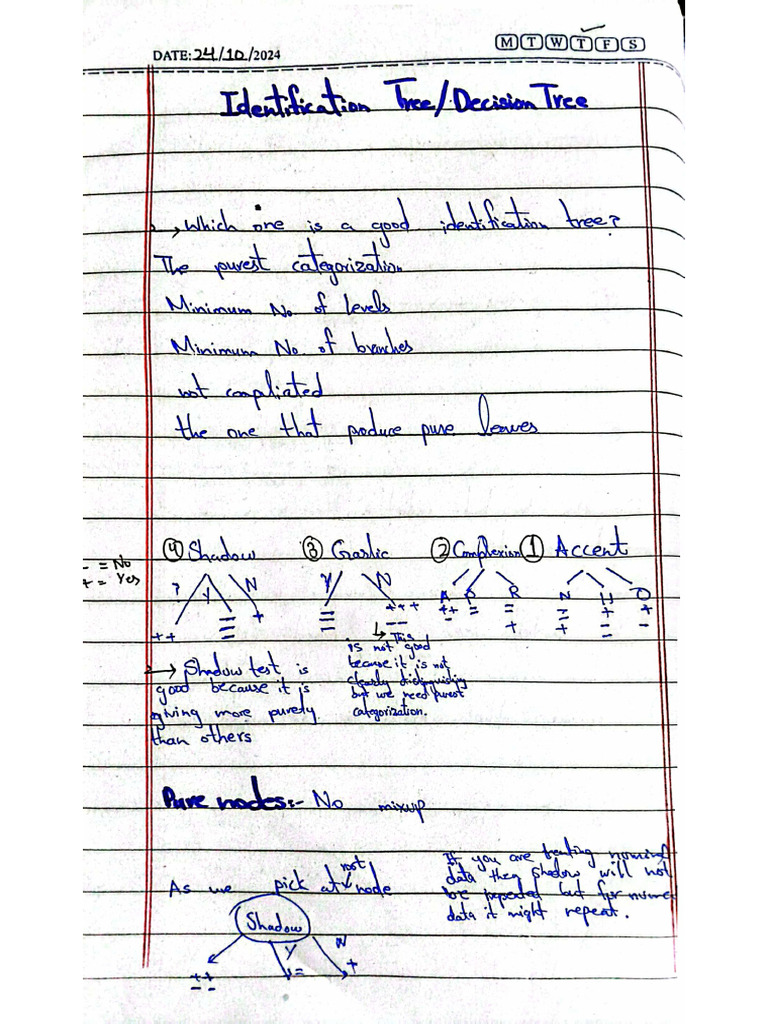 M T W T F S
DATE: 24/10/2024
Identification Tree/Decision Tree
Which one is a good identification tree?
The purest categorization
Minimum No of levels
Minimum No. of branches
not compliated
the one that produce pure leaves
- = No
+ = Yes
④ Shadow ③ Garlic ② Complexion ① Accent
? Y N Y N A P R N H O
++ + +++ -- ++ - + + + - + -
↳ This
is not good
because it is not
clearly distinguiding
but we need purest
categorization.
→ Shadow test is
good because it is
giving more purely
than others
Pure nodes:- No mixup
As we pick at root node
If you are treating nominal
data then shadow will not
be repeated but for nume
data it might repeat.
Shadow
Y N
++ -- = +